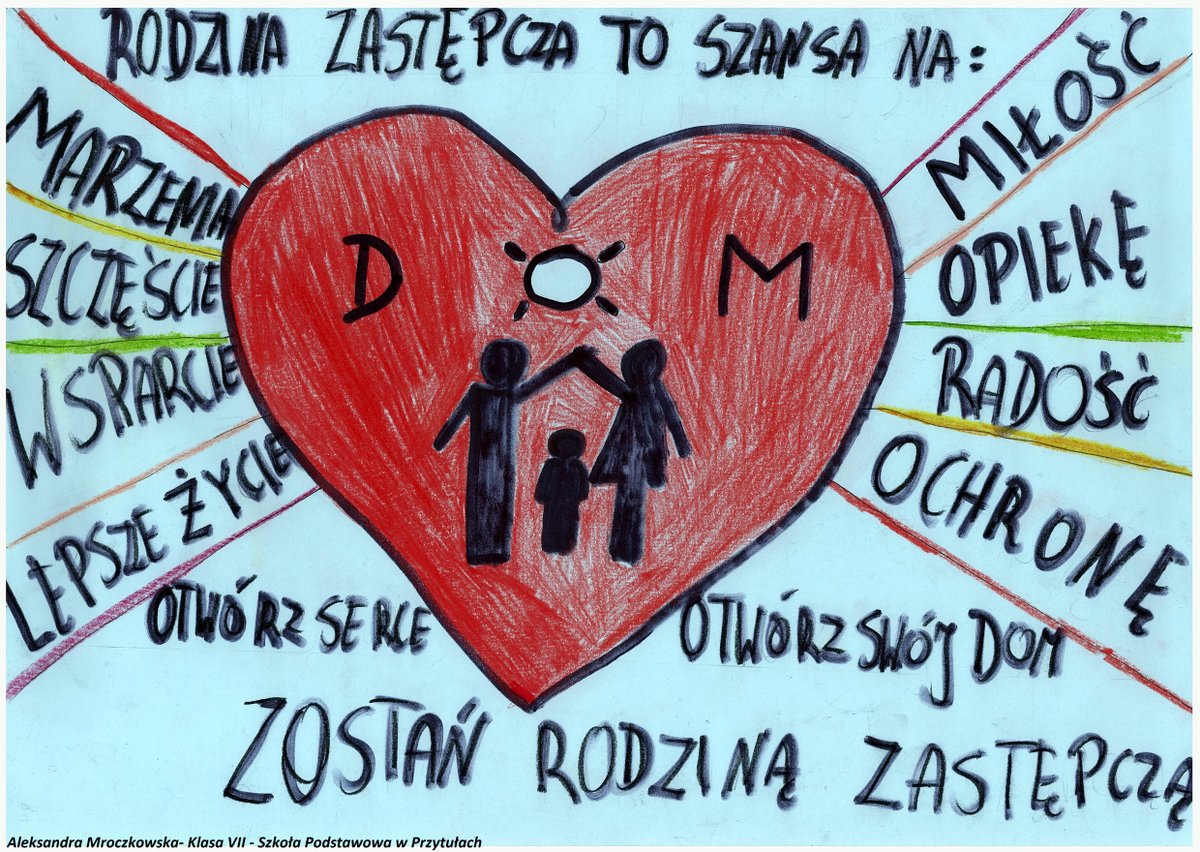 RODZINA ZASTĘPCZA TO SZANSA NA:
MARZENIA
SZCZĘŚCIE
WSPARCIE
LEPSZE ŻYCIE
MIŁOŚĆ
OPIEKĘ
RADOŚĆ
OCHRONĘ
D M
OTWÓRZ SERCE
OTWÓRZ SWÓJ DOM
ZOSTAŃ RODZINĄ ZASTĘPCZĄ
Aleksandra Mroczkowska- Klasa VII - Szkoła Podstawowa w Przytułach